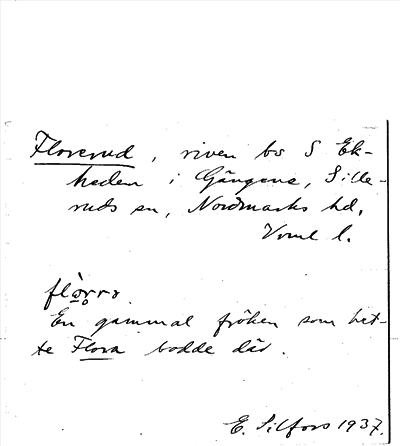 Florerud, riven bs S Ek-
heden i Gängene, Sille-
ruds sn, Nordmarks hd.
Vrml l.
flòrrə
En gammal fröken som het-
te Flora bodde där.
E. Silfors 1937.